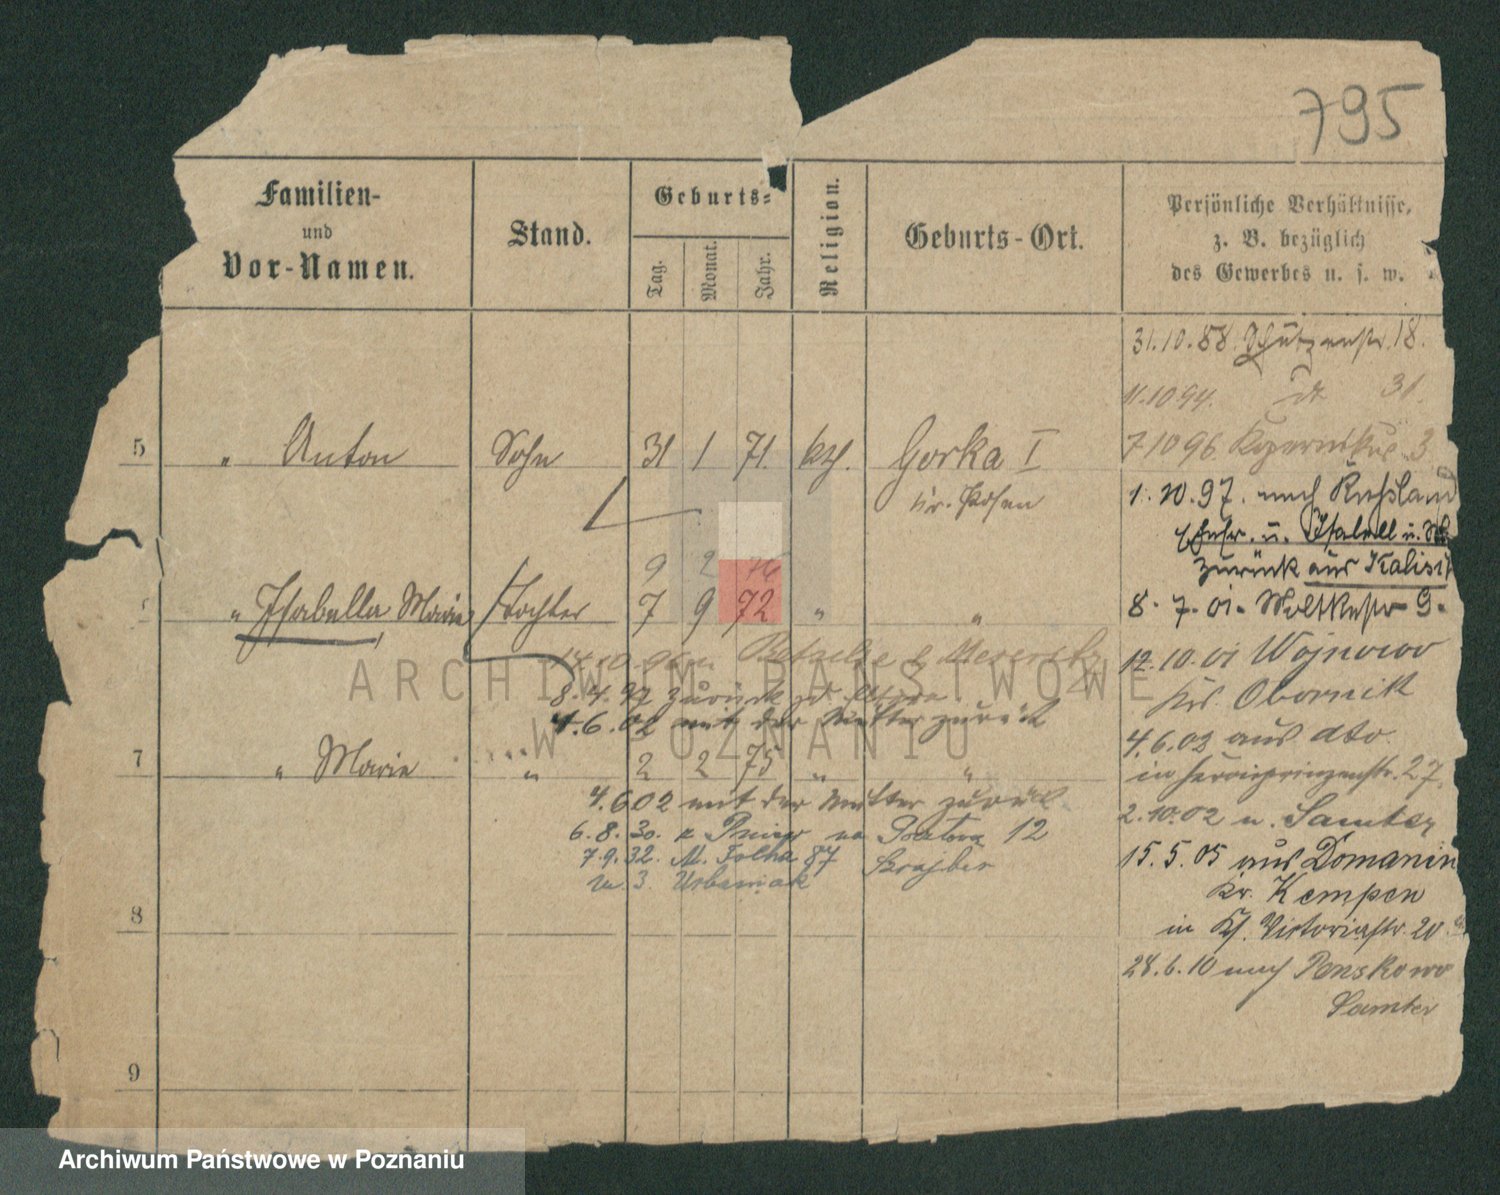 795
Familien-
und
Vor-Namen.
Stand.
Geburts-
Tag.
Monat.
Jahr.
Religion.
Geburts-Ort.
Persönliche Verhältnisse,
z. B. bezüglich
des Gewerbes u. s. w.
31.10.88. Schützenstr. 18.
11.10 94. 31.
5 " Anton Sohn 31 1 71. kth. Gorka I
7 10 96 Kopernikus 3
Kr. Posen
1. 10. 97. nach Russland
u. Isabell u.
9 2 76
zurück aus Kalisch
" Isabella Marie Tochter 7 9 72 " "
8. 7. 01. Moltkestr 9.
12. 10. 01 Wojnowo
8. 4. 97 zurück
Krs. Obornik
4. 6. 02 mit der Mutter zurück
4. 6. 02 aus dto.
7 " Marie " 2 2 75 " "
in 27.
4.6.02 mit der Mutter zurück
2. 10. 02 n. Samter
6. 8. 30. 12
7. 9. 32. M. Focha 87
15. 5. 05 aus Domanin
m. 3. Urbaniak
Kr. Kempen
8
in Victoriastr. 20.
28. 6. 10 nach Penskowo
Samter
9
ARCHIWUM PAŃSTWOWE
W POZNANIU
Archiwum Państwowe w Poznaniu